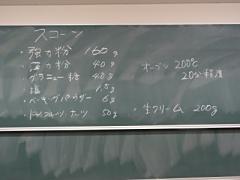 スコーン
・強力粉 160g
・薄力粉 40g
・グラニュー糖 40g
・塩 1.5g
・ベーキングパウダー 6g
・ドライフルーツ、ナッツ 50g
オーブン 200℃
20分程度
・生クリーム 200g